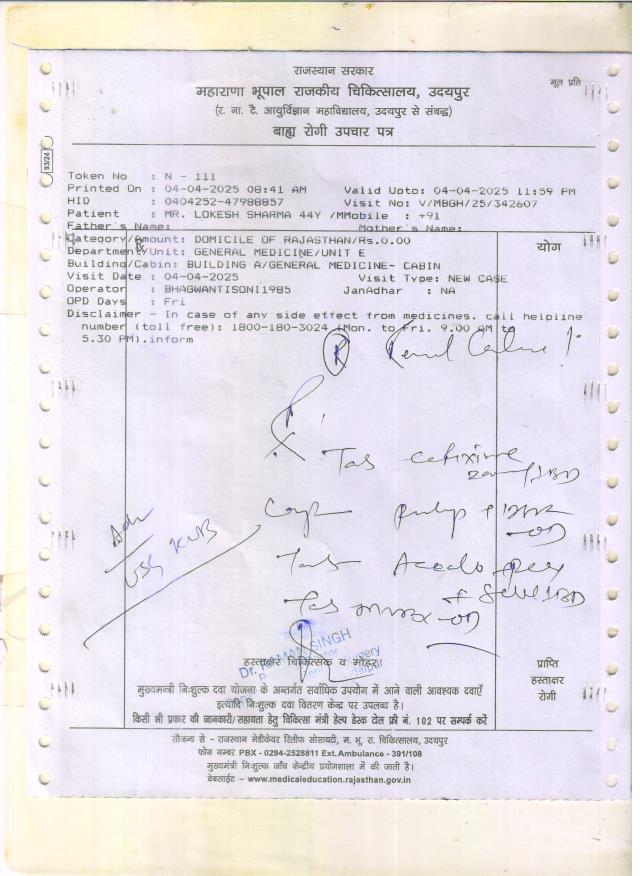 राजस्थान सरकार
मूल प्रति
महाराणा भूपाल राजकीय चिकित्सालय, उदयपुर
(र. ना. टै. आयुर्विज्ञान महाविद्यालय, उदयपुर से संबद्ध)
बाह्य रोगी उपचार पत्र
93/24
Token No : N - 111
Printed On : 04-04-2025 08:41 AM Valid Upto: 04-04-2025 11:59 PM
HID : 0404252-47988857 Visit No: V/MBGH/25/342607
Patient : MR. LOKESH SHARMA 44Y /MMobile : +91
Father's Name: Mother's Name:
Category/Amount: DOMICILE OF RAJASTHAN/Rs.0.00
योग
Department/Unit: GENERAL MEDICINE/UNIT E
Building/Cabin: BUILDING A/GENERAL MEDICINE- CABIN
Visit Date : 04-04-2025 Visit Type: NEW CASE
Operator : BHAGWANTISONI1985 JanAdhar : NA
OPD Days : Fri
Disclaimer - In case of any side effect from medicines. call helpline
number (toll free): 1800-180-3024 (Mon. to Fri. 9.00 AM to
5.30 PM).inform
R
Tab cefixime
BD
Cap
OD
Adv
USG KUB
Tab
BD
Tab OD
Dr. SINGH
हस्ताक्षर चिकित्सक व मोहर
प्राप्ति
हस्ताक्षर
रोगी
मुख्यमन्त्री निःशुल्क दवा योजना के अन्तर्गत सर्वाधिक उपयोग में आने वाली आवश्यक दवाएँ
इत्यादि निःशुल्क दवा वितरण केन्द्र पर उपलब्ध है।
किसी भी प्रकार की जानकारी/सहायता हेतु चिकित्सा मंत्री हेल्प डेस्क टोल फ्री नं. 102 पर सम्पर्क करें
सौजन्य से - राजस्थान मेडीकेयर रिलीफ सोसायटी, म. भू. रा. चिकित्सालय, उदयपुर
फोन नम्बर PBX - 0294-2528811 Ext. Ambulance - 391/108
मुख्यमंत्री निःशुल्क जाँच केन्द्रीय प्रयोगशाला में की जाती है।
वेबसाईट - www.medicaleducation.rajasthan.gov.in